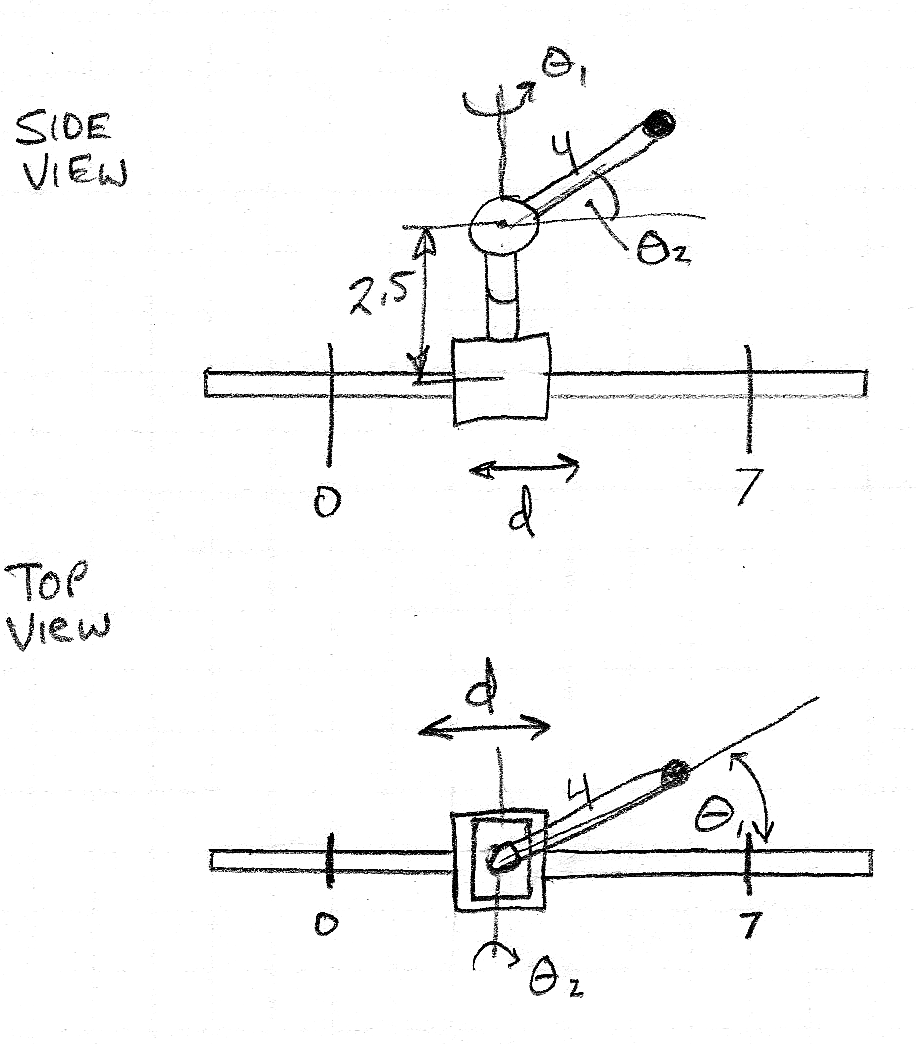 SIDE
VIEW
θ₁
4
θ₂
2.5
0
7
d
TOP
VIeW
d
4
θ₁
0
7
θ₂